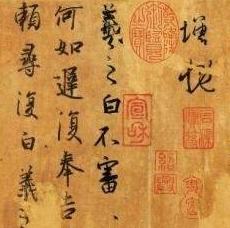 增慨
羲之白不審
何如遲復奉告
賴尋復白羲之
宣和